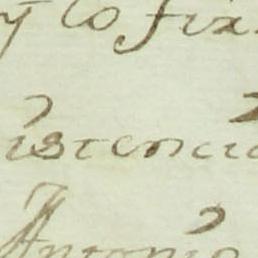 y lo fix
istencia
Antonio